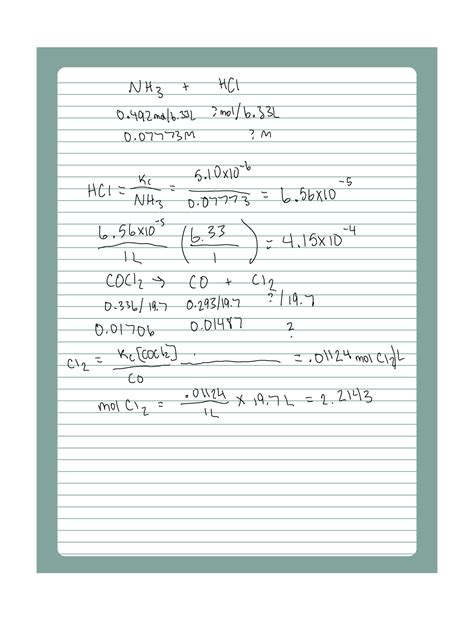 NH₃ + HCl
0.492mol/6.33L ?mol/6.33L
0.07773M ?M
HCl = Kc/NH₃ = 5.10x10⁻⁶/0.07773 = 6.56x10⁻⁵
6.56x10⁻⁵/1L (6.33/1) = 4.15x10⁻⁴
COCl₂ → CO + Cl₂
0.336/19.7 0.293/19.7 ?/19.7
0.01706 0.01487 ?
Cl₂ = Kc[COCl₂]/CO = .01124 mol Cl₂/L
mol Cl₂ = .01124/1L x 19.7L = 2.2143